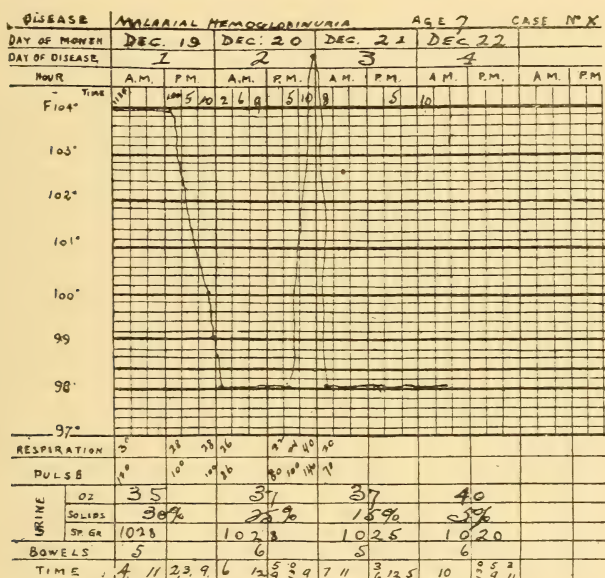 DISEASE MALARIAL HEMOGLOBINURIA AGE 7 CASE Nº X
DAY OF MONTH DEC. 19 DEC. 20 DEC. 21 DEC 22
DAY OF DISEASE 1 2 3 4
HOUR A.M. P.M. A.M. P.M. A.M. P.M. A.M. P.M. A.M. P.M.
TIME 5 10 2 6 9 5 10 8 5 10
F104°
103°
102°
101°
100°
99
98
97°
RESPIRATION 28 28 26 40 20
PULSE 100 100 86 80 100 140 70
URINE
OZ 35 37 37 40
SOLIDS 30% 25% 15% 5%
SP. GR 1028 1028 1025 1020
BOWELS 5 6 5 6
TIME 4 11 2 3, 9, 6 12 7 11 10